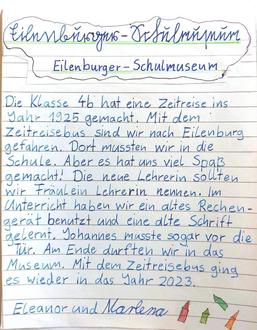 Eilenburger-Schulmuseum
Eilenburger-Schulmuseum
Die Klasse 4b hat eine Zeitreise ins
Jahr 1925 gemacht. Mit dem
Zeitreisebus sind wir nach Eilenburg
gefahren. Dort mussten wir in die
Schule. Aber es hat uns viel Spaß
gemacht! Die neue Lehrerin sollten
wir Fräulein Lehrerin nennen. Im
Unterricht haben wir ein altes Rechen-
gerät benutzt und eine alte Schrift
gelernt. Johannes musste sogar vor die
Tür. Am Ende durften wir in das
Museum. Mit dem Zeitreisebus ging
es wieder in das Jahr 2023.
Eleanor und Marlena